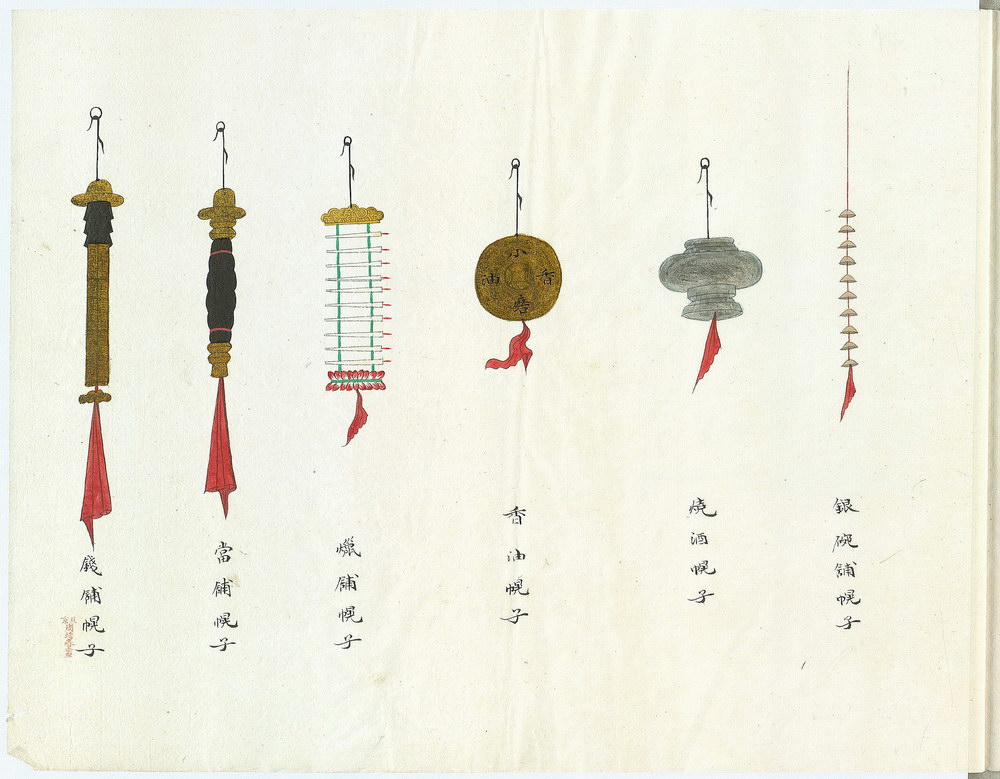 銀碗舖幌子
燒酒幌子
香油幌子
小
香
油
磨
爉舖幌子
當舖幌子
錢舖幌子